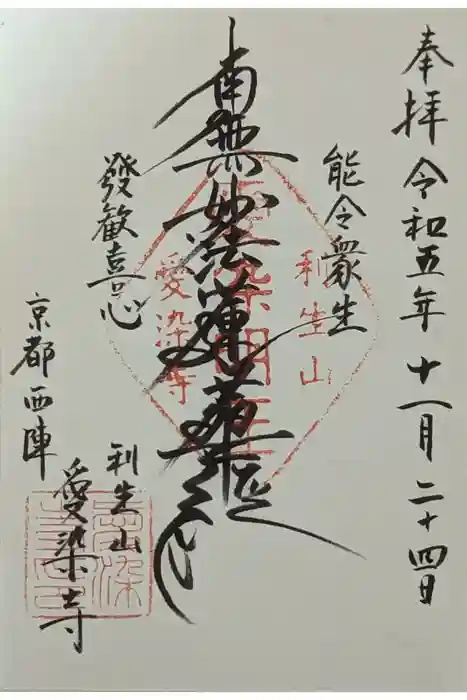 奉拝 令和五年十一月二十四日
能令衆生
南無妙法蓮華経
發歓喜心
利生山
愛染明王
愛染寺
京都西陣
利生山
愛染寺